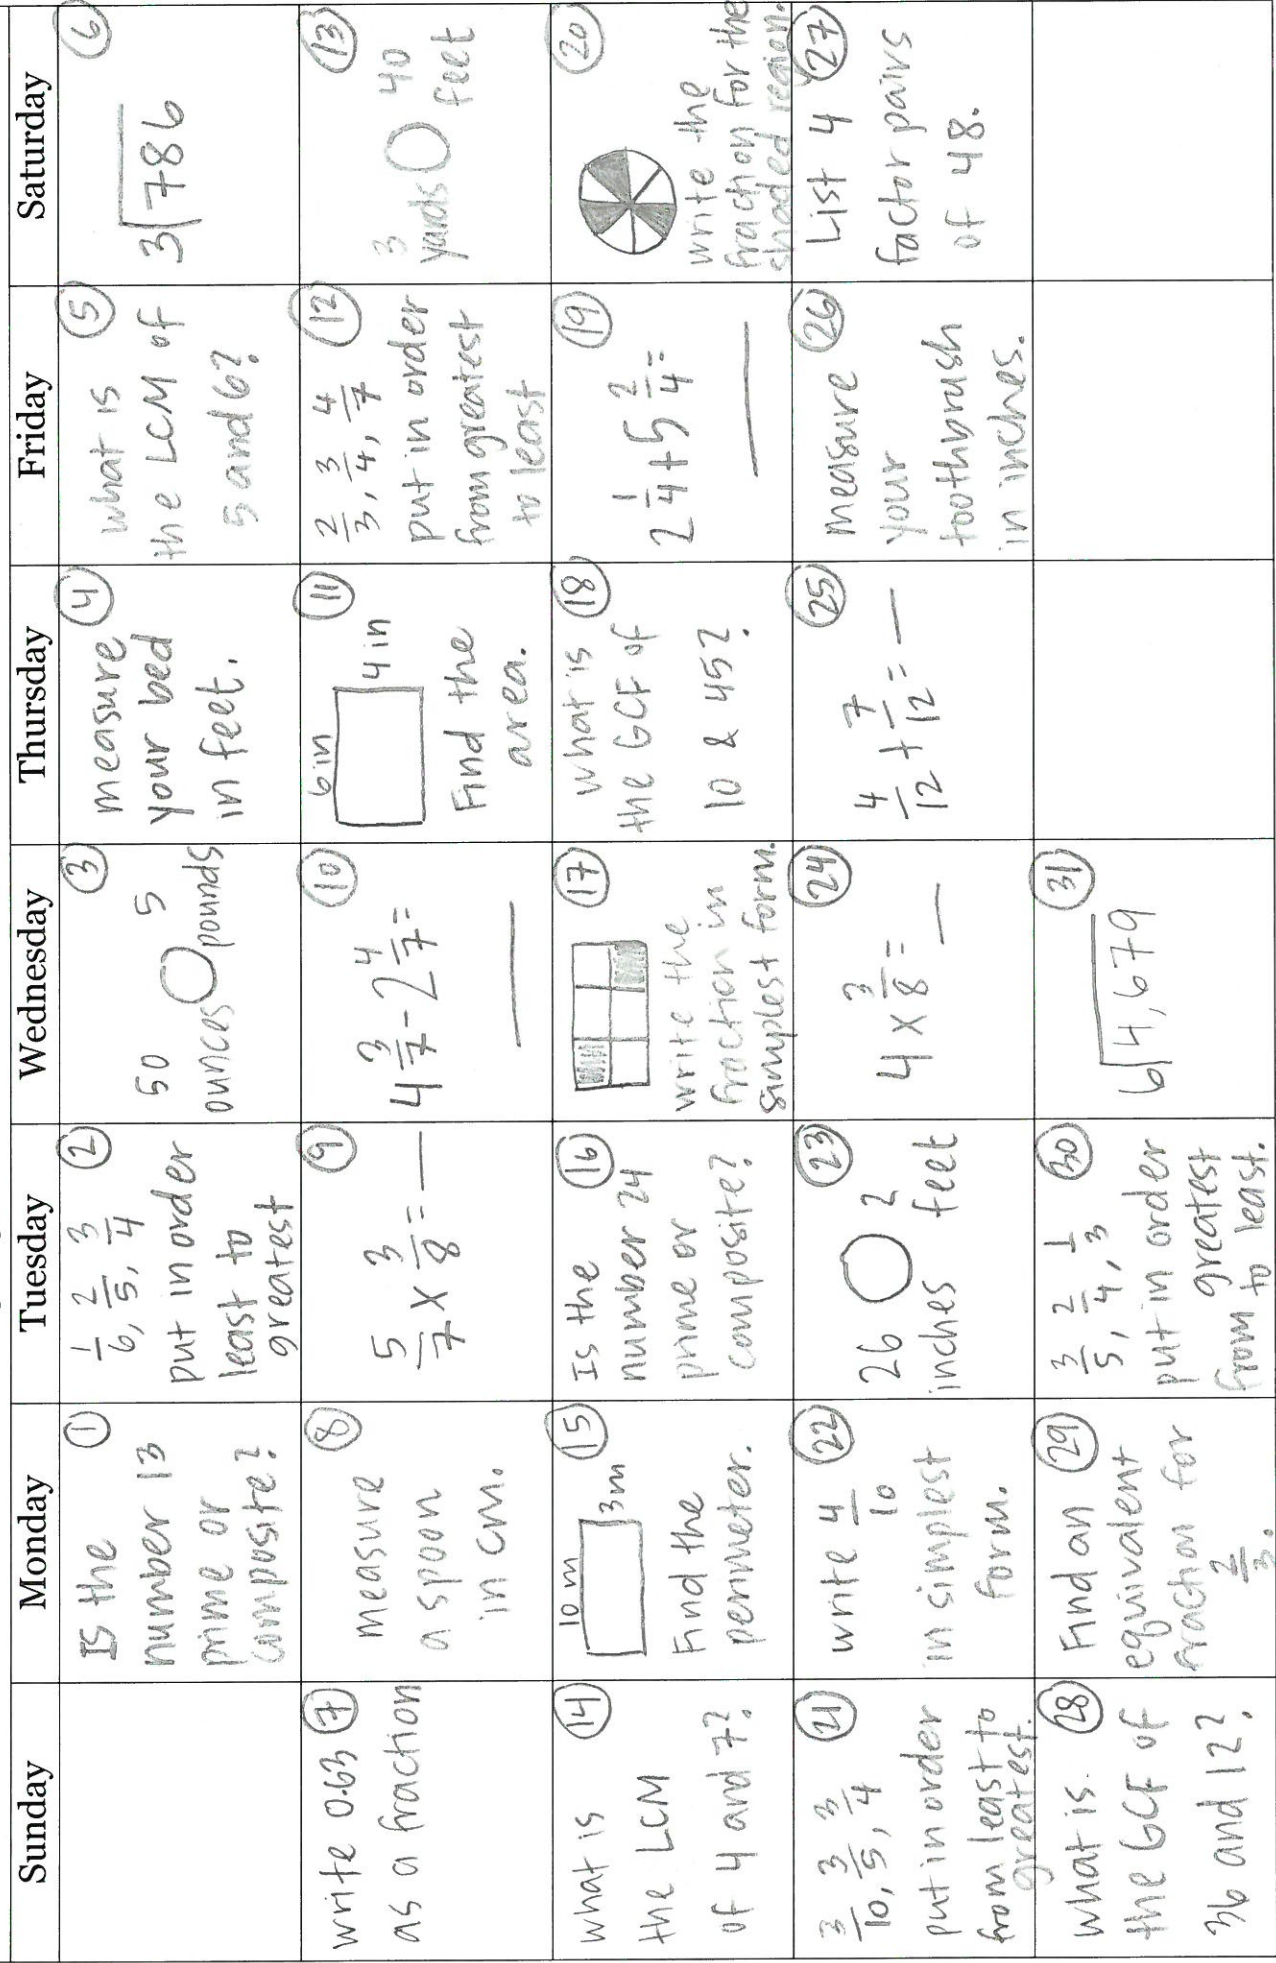 Sunday Monday Tuesday Wednesday Thursday Friday Saturday
①
Is the
number 13
prime or
composite?
②
1/6, 2/5, 3/4
put in order
least to
greatest
③
50 5
ounces pounds
④
measure
your bed
in feet.
⑤
what is
the LCM of
5 and 6?
⑥
3⟌786
write 0.63 ⑦
as a fraction
⑧
measure
a spoon
in cm.
⑨
5/7 x 3/8 =
⑩
4 3/7 - 2 4/7 =
⑪
6in
4in
Find the
area.
⑫
2/3, 3/4, 4/7
put in order
from greatest
to least
⑬
3 40
yards feet
⑭
what is
the LCM
of 4 and 7?
⑮
10 m
3m
Find the
perimeter.
⑯
Is the
number 24
prime or
composite?
⑰
write the
fraction in
simplest form.
⑱
what is
the GCF of
10 & 45?
⑲
2 1/4 + 5 2/4 =
⑳
write the
fraction for the
shaded region.
㉑
3/10, 3/5, 3/4
put in order
from least to
greatest.
㉒
write 4/10
in simplest
form.
㉓
26 2
inches feet
㉔
4 x 3/8 =
㉕
4/12 + 7/12 =
㉖
measure
your
toothbrush
in inches.
List 4 ㉗
factor pairs
of 48.
what is ㉘
the GCF of
36 and 12?
Find an ㉙
equivalent
fraction for
2/3.
㉚
3/5, 2/4, 1/3
put in order
greatest
from to least.
㉛
6⟌4,679